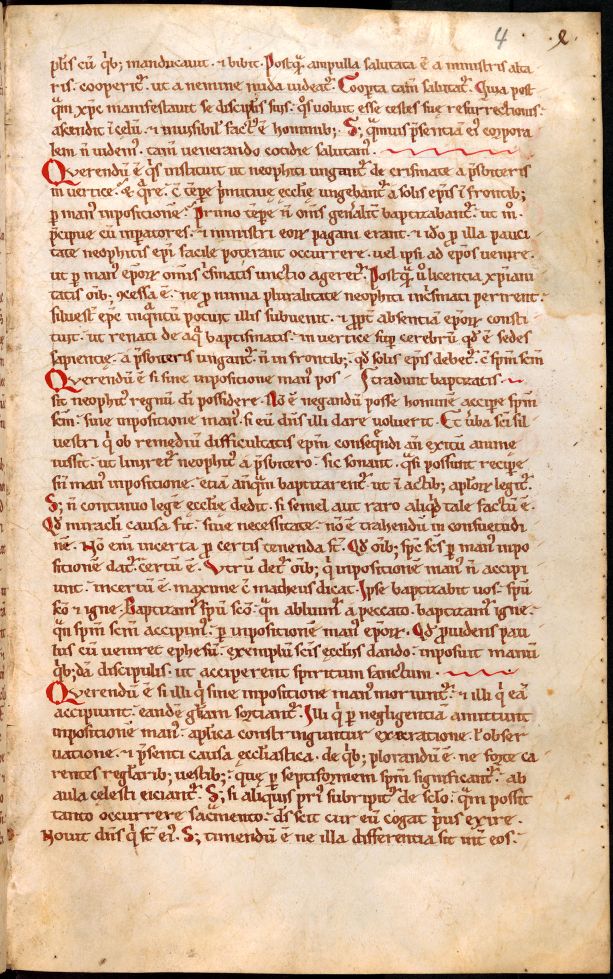 4 .2.
plis cū qb; manducauit · ⁊ bibit · Postq̄ ampulla salutata ē a ministris alta
ris · cooperit᷑ · ut a nemine nuda uideat᷑ · Cooperta tam̄ salutat᷑ · Quia post
qm̄ xp̄c manifestauit se discip̄lis suis · q̊s uoluit esse testes sue resurrectionis ·
ascendit ī celū · ⁊ inuisibil' fact᷒ ē hominib; · S; q̄muis p̄sentiā ei᷒ corpora
lem n̄ uidem᷒ · tam̄ uenerando cotidie salutam᷒ ·
Querendū ē q̄s instituit ut neophiti ungant᷑ de crismate a p̄sbiteris
in uertice · & q̄re · c̄ tēpe p̄mitiue ecclie ungebant᷑ a solis ep̄is ī frontib;
p̱ man᷒ inpositionē · Primo tēpe n̄ om̄s gen̄alit᷑ baptizabant᷑ · ut m̊ ·
p̄cipue cū inp̱atores · ⁊ ministri eoꝝ pagani erant · ⁊ id̊o p̱ illa pauci
tate neophitis ep̄i facile poterant occurrere · uel ipsi ad ep̄os uenire ·
ut p̱ man᷒ ep̄oꝝ omis c̄smatis unctio ageret᷑ · Postq̄ u̇ licentia xp̄iani
tatis om̄ib; ꝯcessa ē · ne p̱ nimia pluralitate neophiti inc̄smati perirent ·
siluest᷑ ep̄c inq̄ntū potuit illis subuenit · ⁊ ꝓpt᷑ absentiā ep̄oꝝ consti
tuit · ut renati de aq̄ baptismatis · in uertice sup̱ cerebrū qđ ē sedes
sapientię · a p̄sbiteris ungant᷑ · n̄ in frontib; · qđ solis ep̄is debet᷑ · c̄ sp̄m sc̄m
Querendū ē si sine inpositione man᷒ pos tradunt baptizatis ·
sit neophit᷒ regnū di possidere · Nō ē negandū posse hominē accipe sp̄m
sc̄m · sine inpositione man᷒ · si eū dn̄s illi dare uoluerit · Et ūba sc̄i sil
uestri q̇ ob remediū difficultatis ep̄m consequendi an̄ exitū anime
iussit · ut liniret᷑ neophit᷒ a p̄sbitero · sic sonant · q̄si possint recipe
sine man᷒ inpositione · etiā anq̄m baptizarent᷑ · ut ī actib; ap̄loꝝ legit᷑ ·
S; n̄ continuo legē ecclie dedit · si semel aut raro aliq̇d tale factū ē ·
Qđ miracli causa fit · siue necessitate · nō ē trahendū in consuetudi
nē · Nō eni incerta p̱ certis tenenda st̄ · Qđ om̄ib; sp̄c sc̄s p̱ man᷒ inpo
sitionē dat᷑ · certū ē · Utrū det᷑ om̄ib; q̇ inpositionē man᷒ n̄ accipi
unt · incertū ē · maxime c̄ matheus dicat · Ipse baptizabit uos · sp̄u
sc̄o ⁊ igne · Baptizam᷑ sp̄u sc̄o · qn̄ abluim᷑ a peccato · baptizam᷑ igne ·
qn̄ sp̄m sc̄m accipim᷒ · p̱ inpositionē man᷒ ep̄oꝝ · Qđ p̱uidens pau
lus cū ueniret ephesū · exemplū sc̄is ecclīis dando · inposuit manū
q̇b;dā discipulis · ut acciperent spiritum sanctum ·
Querendū ē si illi q̇ sine inpositione man᷒ moriunt᷑ · ⁊ illi q̇ eā
accipiunt · eandē glām sorciant᷑ · Illi q̇ p̱ negligentiā amittunt
inpositionē man᷒ · ap̄lica constringuntur execratione · l' obser
uatione · ⁊ p̄senti causa ecclesiastica · de q̇b; plorandū ē · ne forte ca
rentes regłarib; uestib; · que p̱ septiformem sp̄m significant᷑ · ab
aula celesti eiciant᷑ · S; si aliquis pri᷒ subripit᷑ de sclo · q̄m possit
tanto occurrere sac̄mento · ds̄ scit cur eū cogat pri᷒ exire ·
Nouit dn̄s q̇ st̄ ei᷒ · S; timendū ē ne illa differentia sit int᷑ eos ·